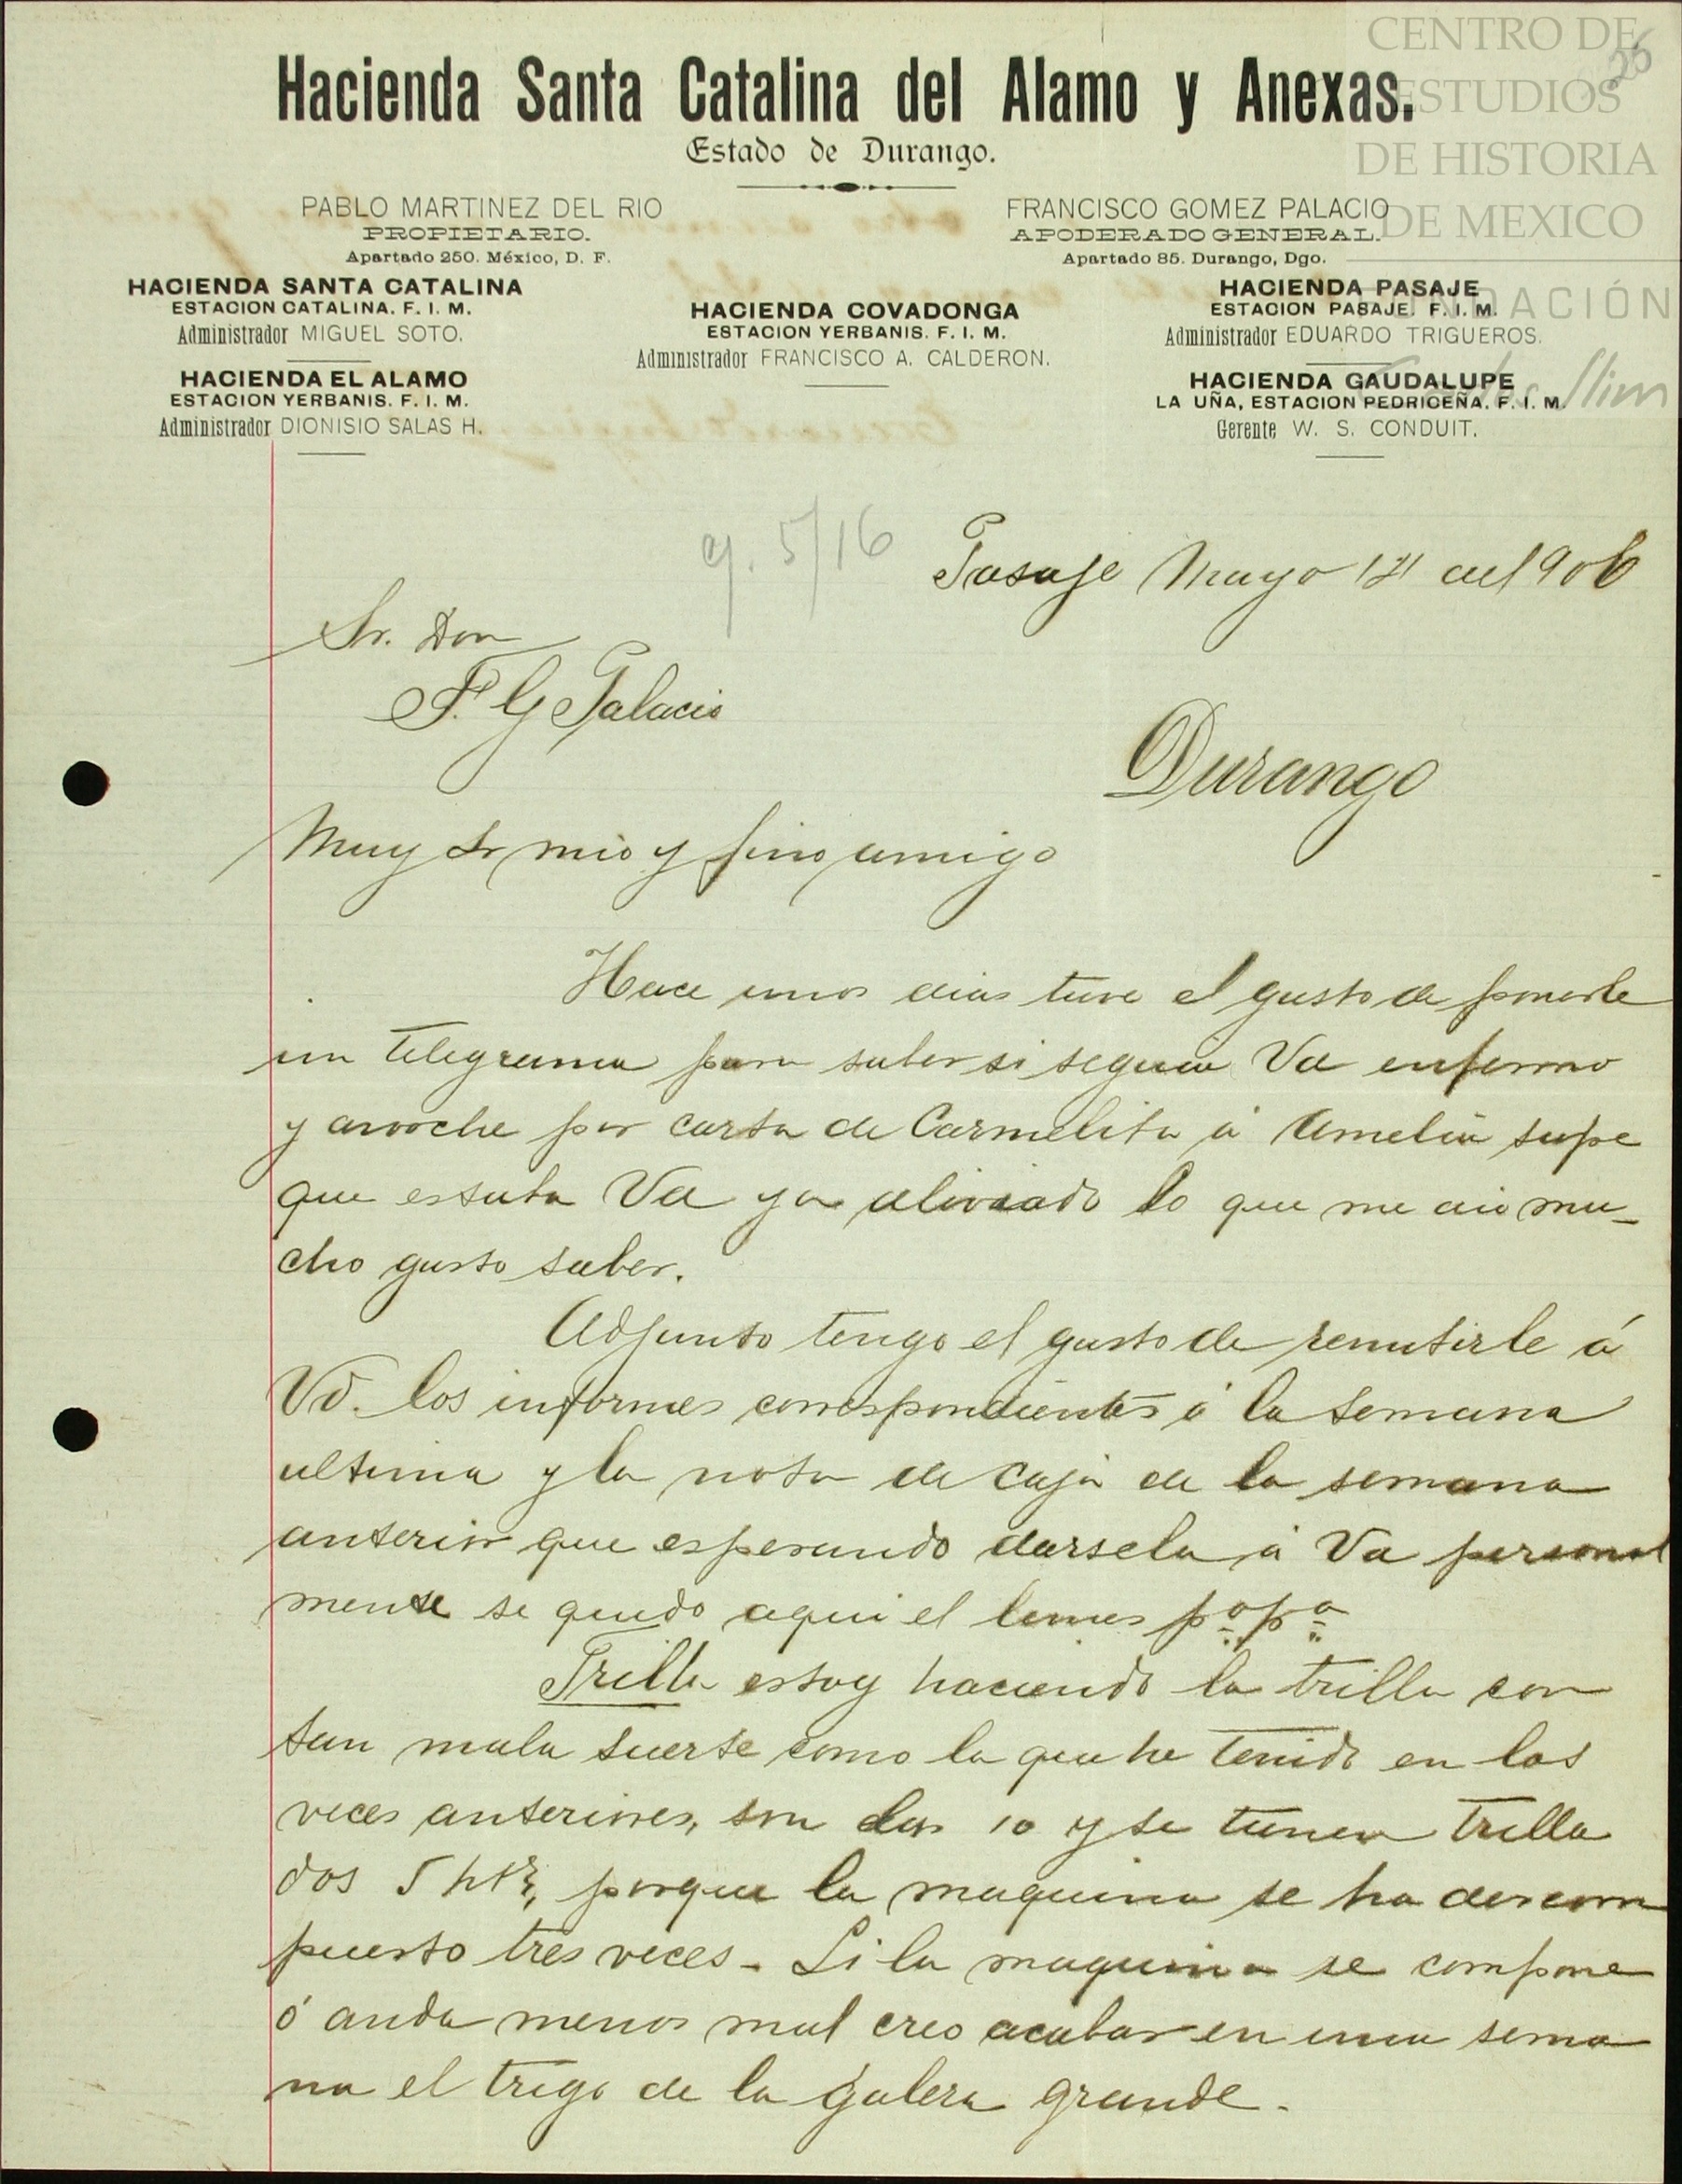 CENTRO DE
ESTUDIOS
DE HISTORIA
DE MEXICO
FUNDACIÓN
Carlos Slim
26
Hacienda Santa Catalina del Alamo y Anexas.
Estado de Durango.
PABLO MARTINEZ DEL RIO
PROPIETARIO.
Apartado 250. México, D. F.
FRANCISCO GOMEZ PALACIO
APODERADO GENERAL.
Apartado 85. Durango, Dgo.
HACIENDA SANTA CATALINA
ESTACION CATALINA. F. I. M.
Administrador MIGUEL SOTO.
HACIENDA EL ALAMO
ESTACION YERBANIS. F. I. M.
Administrador DIONISIO SALAS H.
HACIENDA COVADONGA
ESTACION YERBANIS. F. I. M.
Administrador FRANCISCO A. CALDERON.
HACIENDA PASAJE
ESTACION PASAJE. F. I. M.
Administrador EDUARDO TRIGUEROS.
HACIENDA GAUDALUPE
LA UÑA, ESTACION PEDRICEÑA. F. I. M.
Gerente W. S. CONDUIT.
5/16
Pasaje Mayo de 1906
Sr. Don
F. G Palacio
Durango
Muy Sr mio y fino amigo
Hace unos dias tuve el gusto de ponerle
un telegrama para saber si seguia Vd enfermo
y anoche por carta de Carmelita á Amelia supe
que estaba Vd ya aliviado lo que me dió mu-
cho gusto saber.
Adjunto tengo el gusto de remitirle á
Vd. los informes correspondientes á la semana
ultima y la nota de caja de la semana
anterior que esperando darsela á Vd personal
mente se quedo aqui el lunes pº pº
Trilla estoy haciendo la trilla con
tan mala suerte como la que he tenido en las
veces anteriores, son las 10 y se tienen trilla
dos 5 porque la maquina se ha descom
puesto tres veces - Si la maquina se compone
ó anda menos mal creo acabar en una sema
na el trigo de la galera grande.